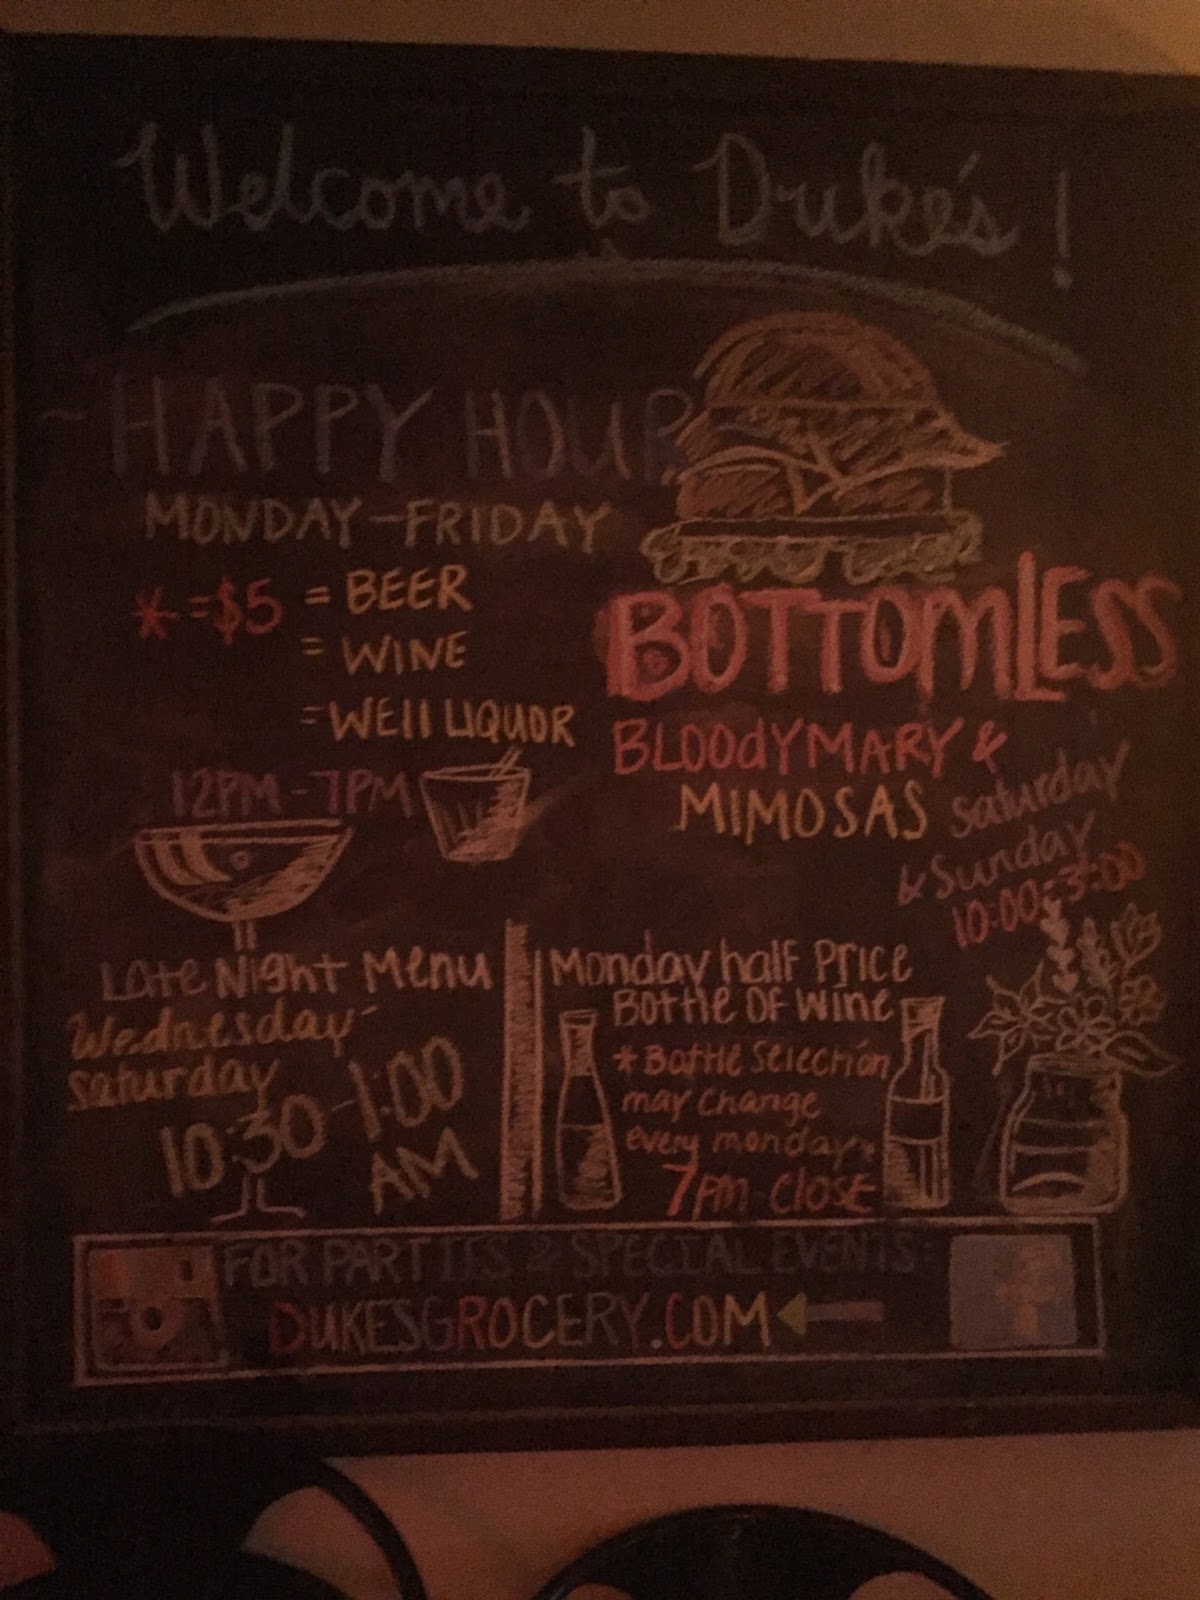 Welcome to Duke's!
~ HAPPY HOUR
MONDAY - FRIDAY
* = $5 = BEER
= WINE
= WEll LIQUOR
12PM - 7PM
BOTTOMLESS
BLOOdYMARY &
MIMOSAS
Saturday
& Sunday
10:00-3:00
Late Night Menu
Wednesday-
saturday
10:30 - 1:00
AM
Monday half Price
Bottle OF wine
* Bottle Selection
may change
every monday*
7pm-close
FOR PARTIES & SPECIAL EVENTS:
DUKESGROCERY.COM